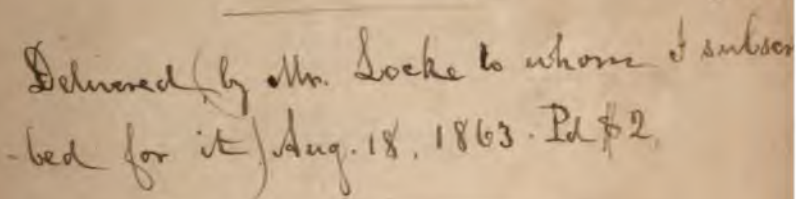 Delivered (by Mr. Locke to whom I subscri
-bed for it) Aug. 18, 1863. Pd $2.